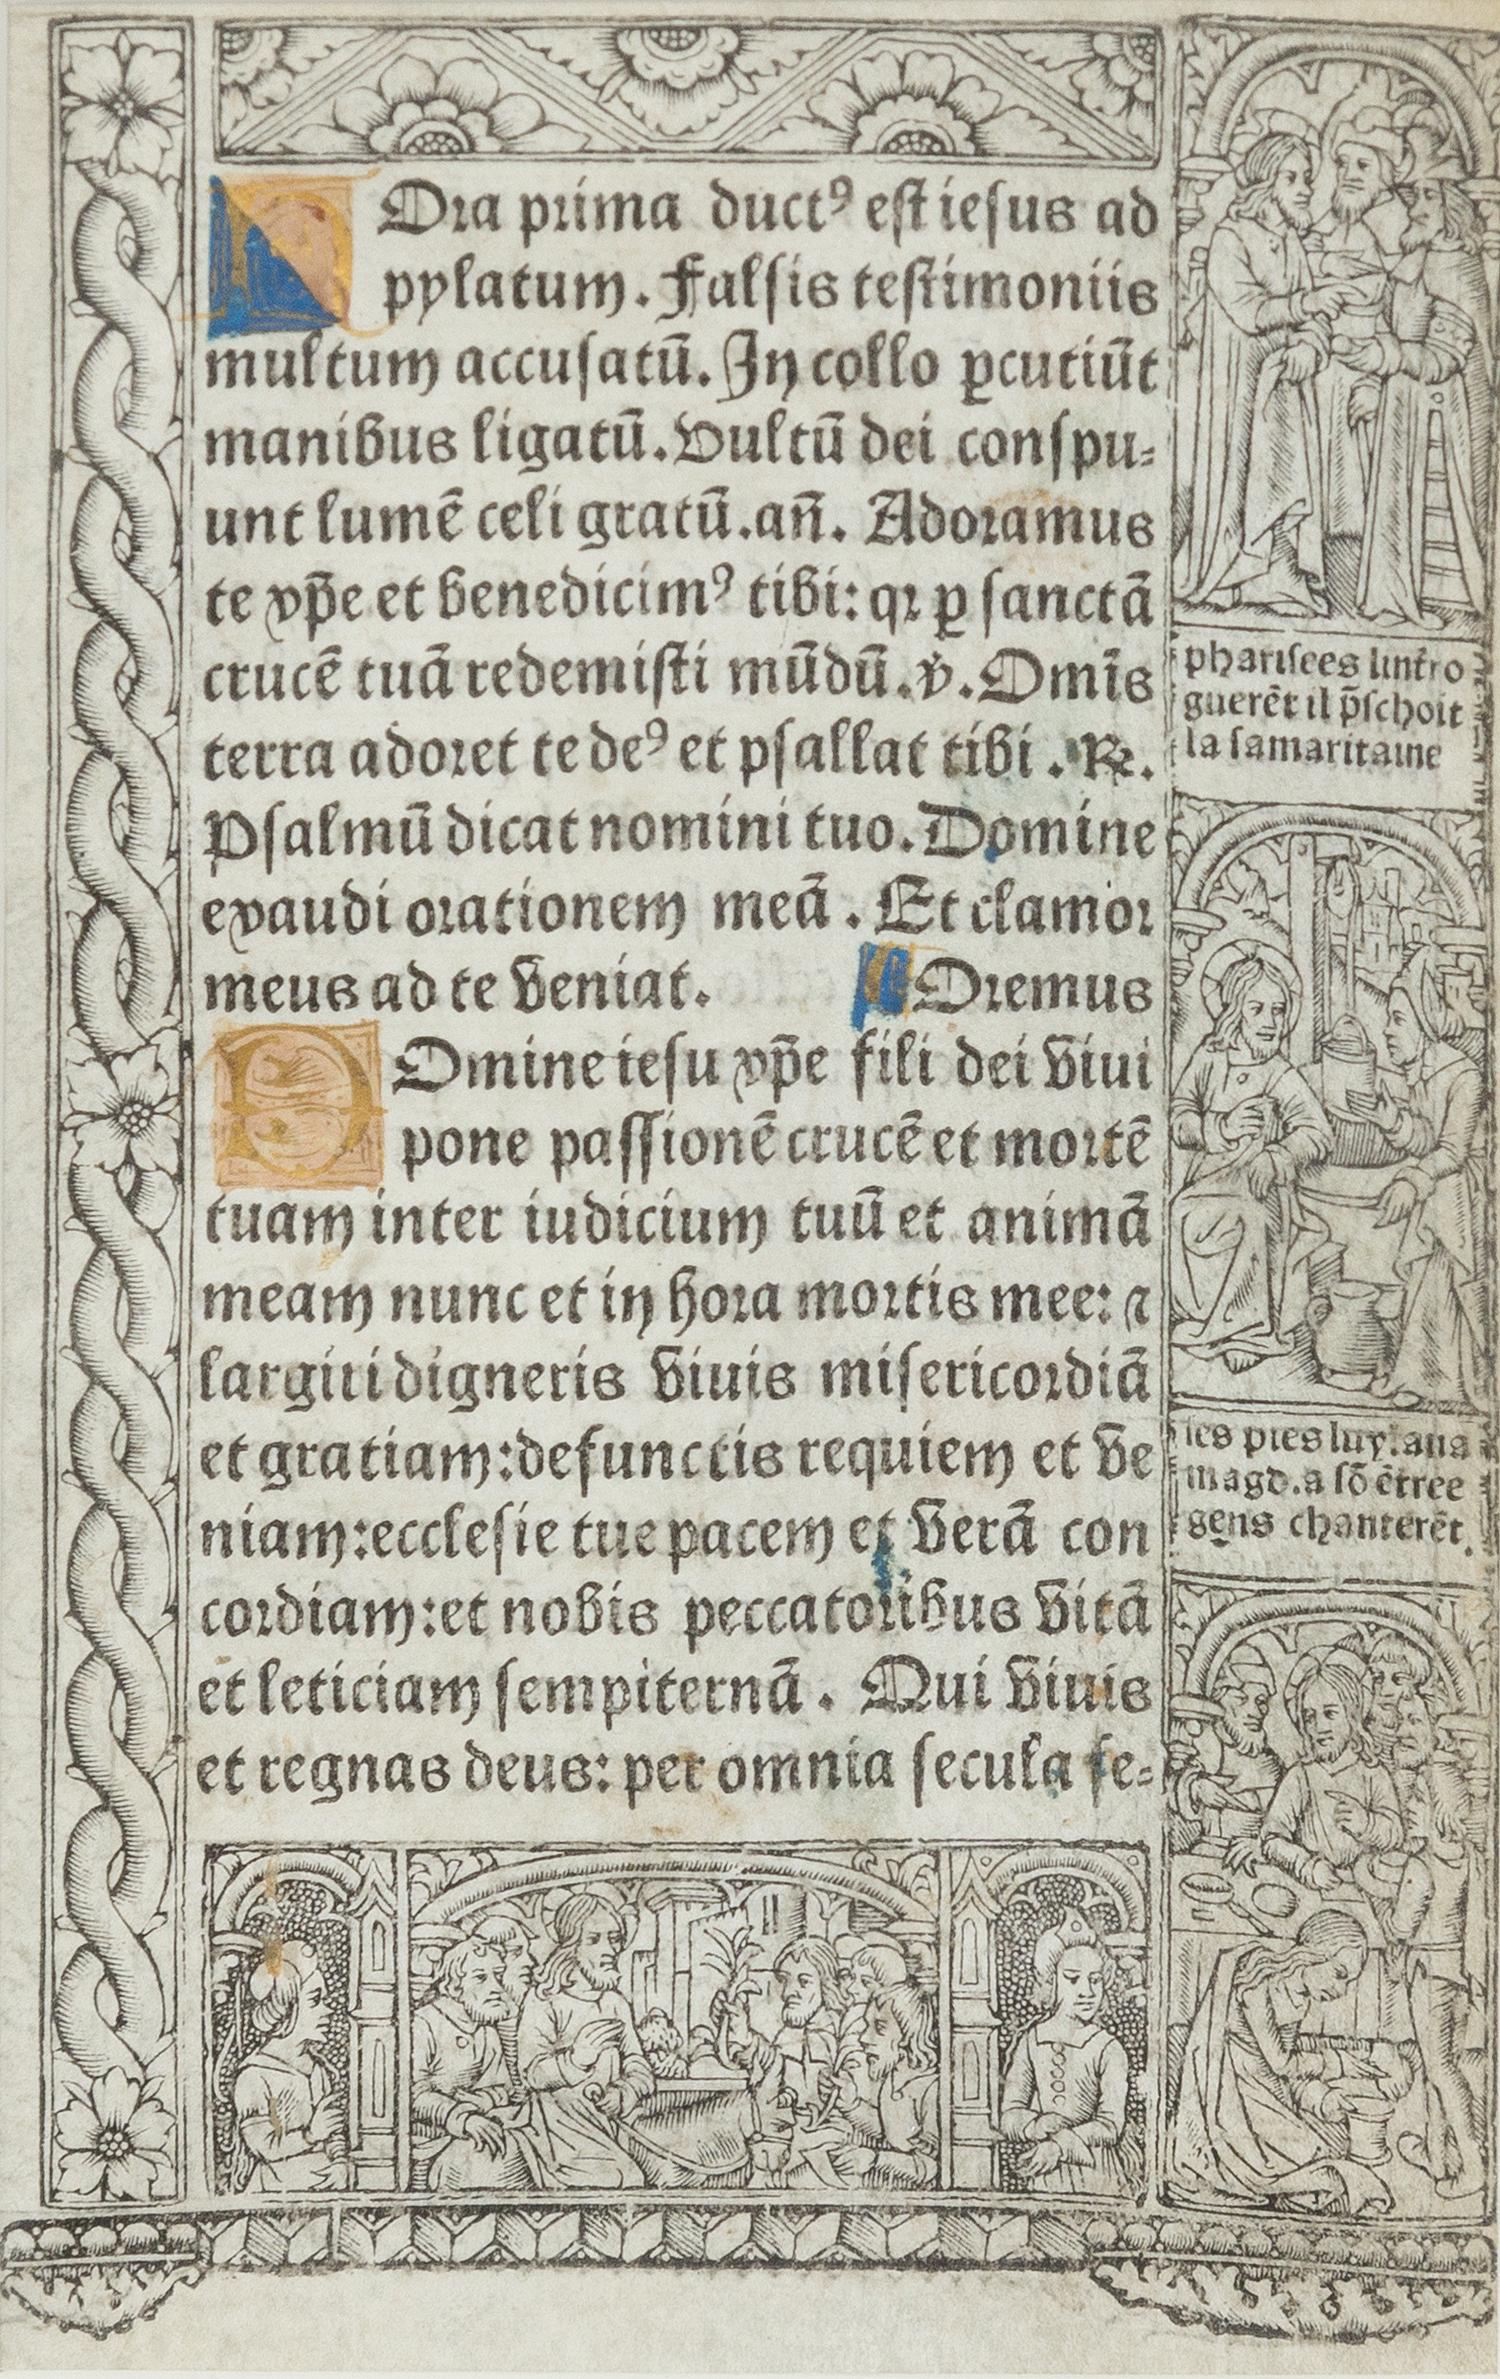 HOra prima ductꝰ est iesus ad
pylatum. Falsis testimoniis
multum accusatū. In collo ꝑcutiūt
manibus ligatū. Vultū dei conspu⸗
unt lumē celi gratū. añ. Adoramus
te xp̄e et benedicimꝰ tibi: qꝛ ꝑ sanctā
crucē tuā redemisti mūdū. ℣. Omīs
terra adoret te deꝰ et psallat tibi. ℟.
Psalmū dicat nomini tuo. Domine
exaudi orationem meā. Et clamor
meus ad te veniat. Oremus
DOmine iesu xp̄e fili dei viui
pone passionē crucē et mortē
tuam inter iudicium tuū et animā
meam nunc et in hora mortis mee: ⁊
largiri digneris viuis misericordiā
et gratiam: defunctis requiem et ve
niam: ecclesie tue pacem et verā con
cordiam: et nobis peccatoribus vitā
et leticiam sempiternā. Qui viuis
et regnas deus: per omnia secula se⸗
pharisees lintro
guerēt il p̄schoit
la samaritaine
les pies luy. laua
magd. a sō ētree
gens chanterēt.